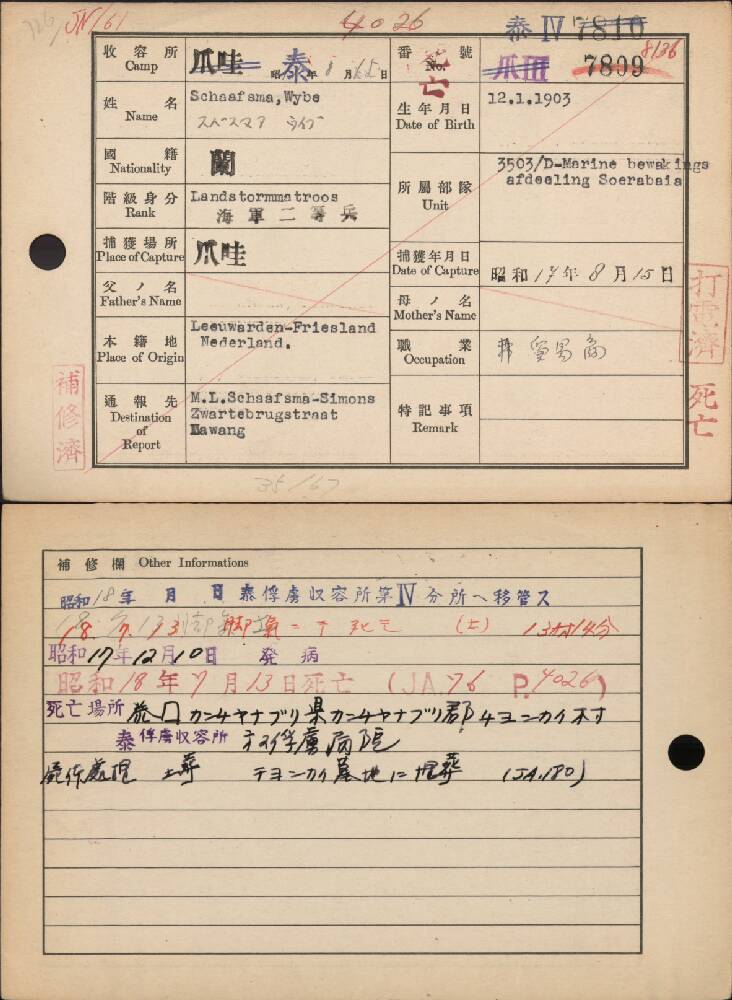 JN/61
4026
泰 IV 7810
8136
収容所 Camp 爪哇 泰 昭 年 8 月 15 日
番號 No. 爪哇 7809
死亡
姓名 Name Schaafsma, Wybe
生年月日 Date of Birth 12.1.1903
國籍 Nationality 蘭
所屬部隊 Unit 3503/D-Marine bewakings
afdeeling Soerabaia
階級身分 Rank Landstormmatroos
海軍二等兵
捕獲場所 Place of Capture 爪哇
捕獲年月日 Date of Capture 昭和 17 年 8 月 15 日
父ノ名 Father's Name
母ノ名 Mother's Name
本籍地 Place of Origin Leeuwarden-Friesland
Nederland.
職業 Occupation 貿易商
通報先 Destination of Report M.L.Schaafsma-Simons
Zwartebrugstraat
Mawang
特記事項 Remark
補修濟
打電濟
死亡
35/67
補修欄 Other Informations
昭和 18 年 月 日 泰俘虜収容所第 IV 分所ヘ移管ス
18. 7. 13 脚氣ニテ死亡 (土) 13時14分
昭和 17 年 12 月 10 日 発病
昭和 18 年 7 月 13 日死亡 (JA.76 P.4026)
死亡場所 泰国カンチヤナブリ県カンチヤナブリ郡チヨンカイ村
泰俘虜収容所 俘虜病院
屍体處理 土葬 チヨンカイ墓地に埋葬 (JA.180)